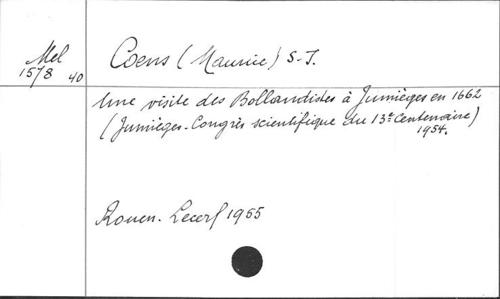 Mel
15/8 40
Coens (Maurice) S.J.
Une visite des Bollandistes à Jumièges en 1662
(Jumièges. Congrès scientifique du 13e Centenaire)
1954.
Rouen. Lecerf 1955